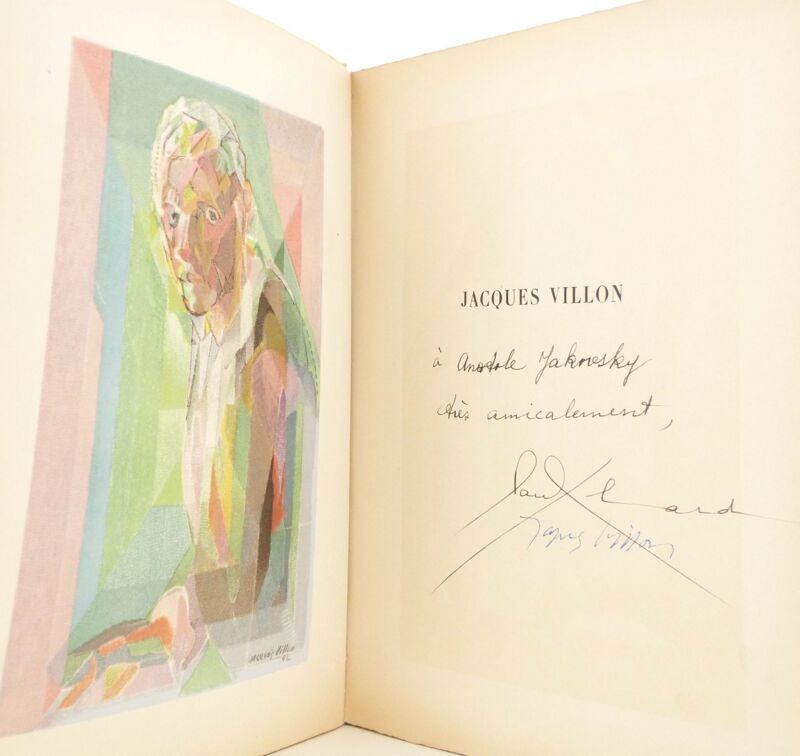 JACQUES VILLON
à Anatole Jakovsky
très amicalement,
Paul Eluard
Jacques Villon
JACQUES Villon
42